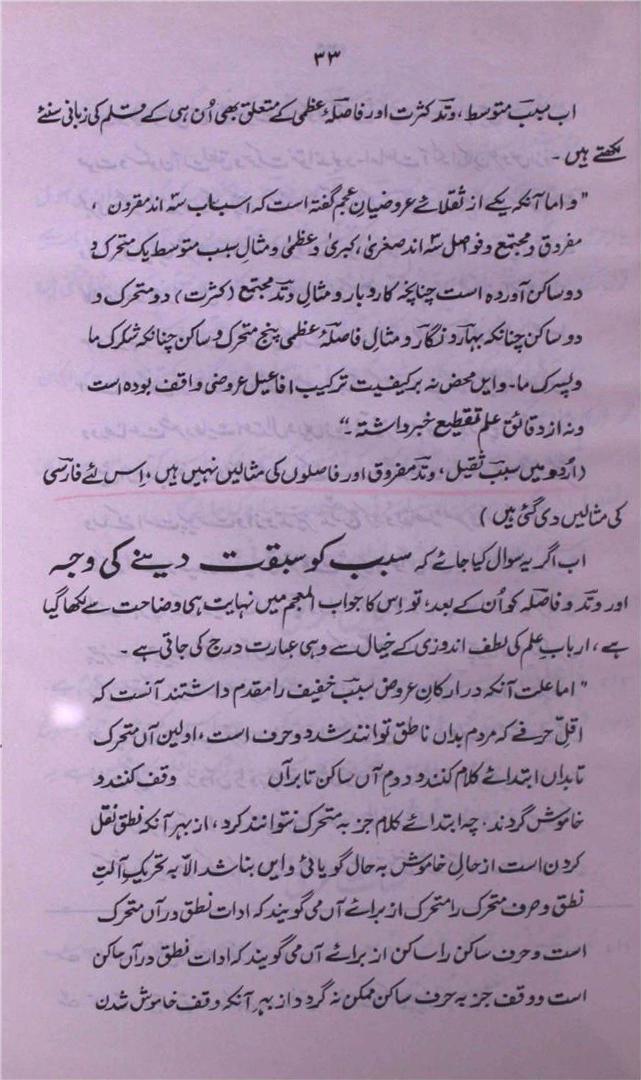 ۳۳
اب سبب متوسط، وتد کثرت اور فاصلۂ عظمیٰ کے متعلق بھی اُن ہی کے قلم کی زبانی سنئے
لکھتے ہیں۔
"و اما آنکہ یکے از ثقلائے عروضیانِ عجم گفتہ است کہ اسباب سہ اند مقرون،
مفروق و مجتمع و فواصل سہ اند صغریٰ، کبریٰ و عظمیٰ و مثالِ سبب متوسط یک متحرک و
دو ساکن آوردہ است چنانچہ کار و بار و مثالِ وتد مجتمع (کثرت) دو متحرک و
دو ساکن چنانکہ بہار و نگار و مثالِ فاصلۂ عظمیٰ پنج متحرک و ساکن چنانکہ شکرک ما
و پسرک ما۔ و ایں محض نہ بر کیفیت ترکیب افاعیل عروضی واقف بودہ است
ونہ از دقائق علم تقطیع خبر داشتہ۔"
(اُردو میں سبب ثقیل، وتد مفروق اور فاصلوں کی مثالیں نہیں ہیں، اِس لئے فارسی
کی مثالیں دی گئی ہیں)
اب اگر یہ سوال کیا جائے کہ سبب کو سبقت دینے کی وجہ
اور وتد و فاصلہ کو اُن کے بعد، تو اِس کا جواب المعجم میں نہایت ہی وضاحت سے لکھا گیا
ہے، اربابِ علم کی لطف اندوزی کے خیال سے وہی عبارت درج کی جاتی ہے۔
"اما علت آنکہ در ارکانِ عروض سبب خفیف را مقدم داشتند آنست کہ
اقلِّ حرفے کہ مردم بداں ناطق توانند شد دو حرف است، اولین آں متحرک
تا بداں ابتدائے کلام کنند و دوم آں ساکن تا برآں وقف کنند و
خاموش گردند۔ چہ ابتدائے کلام جز بہ متحرک نتوانند کرد، از بہر آنکہ نطق نقل
کردن است از حالِ خاموش بہ حال گویائی و ایں بنا شد الّا بہ تحریکِ آلتِ
نطق و حرف متحرک را متحرک از برائے آں می گویند کہ ادات نطق در آں متحرک
است و حرف ساکن را ساکن از برائے آں می گویند کہ ادات نطق در آں ساکن
است و وقف جز بہ حرف ساکن ممکن نہ گردد از بہر آنکہ وقف خاموش شدن